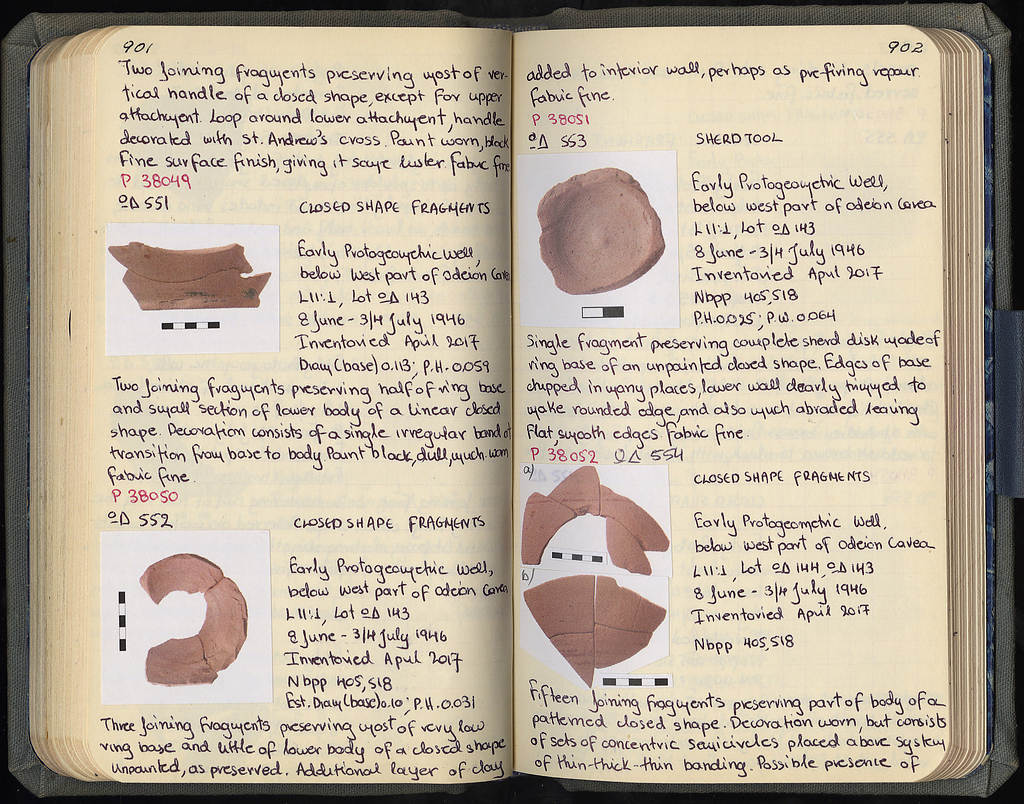 901
Two joining fragments preserving most of ver-
tical handle of a closed shape, except for upper
attachment. Loop around lower attachment, handle
decorated with St. Andrew's cross. Paint worn, black
Fine surface finish, giving it some luster. Fabric fine
P 38049
ΟΔ 551
CLOSED SHAPE FRAGMENTS
Early Protogeometric Well,
below west part of Odeion Cavea
L11:1, Lot ΟΔ 143
8 June - 3/4 July 1946
Inventoried April 2017
Diam (base) 0.113; P.H. 0.059
Two joining fragments preserving half of ring base
and small section of lower body of a linear closed
shape. Decoration consists of a single irregular band at
transition from base to body. Paint black, dull, much worn
Fabric fine.
P 38050
ΟΔ 552
CLOSED SHAPE FRAGMENTS
Early Protogeometric Well,
below west part of Odeion Cavea
L11:1, Lot ΟΔ 143
8 June - 3/4 July 1946
Inventoried April 2017
Nbpp 405,518
Est. Diam (base) 0.10; P.H. 0.031
Three joining fragments preserving most of very low
ring base and little of lower body of a closed shape
unpainted, as preserved. Additional layer of clay
902
added to interior wall, perhaps as pre-firing repair.
Fabric fine.
P 38051
ΟΔ 553
SHERD TOOL
Early Protogeometric Well,
below west part of Odeion Cavea
L11:1, Lot ΟΔ 143
8 June - 3/4 July 1946
Inventoried April 2017
Nbpp 405,518
P.H. 0.025; P.W. 0.064
Single fragment preserving complete sherd disk made of
ring base of an unpainted closed shape. Edges of base
chipped in many places, lower wall clearly trimmed to
make rounded edge, and also much abraded leaving
flat, smooth edges. Fabric fine.
P 38052 ΟΔ 554
CLOSED SHAPE FRAGMENTS
a)
b)
Early Protogeometric Well,
below west part of Odeion Cavea
L11:1, Lot ΟΔ 144, ΟΔ 143
8 June - 3/4 July 1946
Inventoried April 2017
Nbpp 405,518
Fifteen joining fragments preserving part of body of a
patterned closed shape. Decoration worn, but consists
of sets of concentric semicircles placed above system
of thin-thick-thin banding. Possible presence of